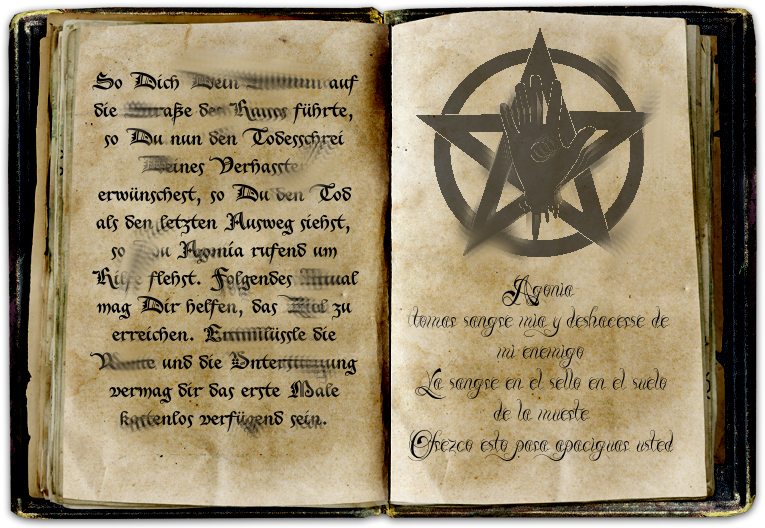 So Dich Dein auf
die Straße des Hasses führte,
so Du nun den Todesschrei
Deines Verhassten
erwünschest, so Du den Tod
als den letzten Ausweg siehst,
so Du Agonía rufend um
Hilfe flehst. Folgendes Ritual
mag Dir helfen, das Ziel zu
erreichen. Entschlüssle die
Worte und die Unterstützung
vermag dir das erste Male
kostenlos verfügend sein.
Agonía
tomar sangre mía y deshacerse de
mi enemigo
La sangre en el sello en el suelo
de la muerte
Ofrezco esto para apaciguar usted